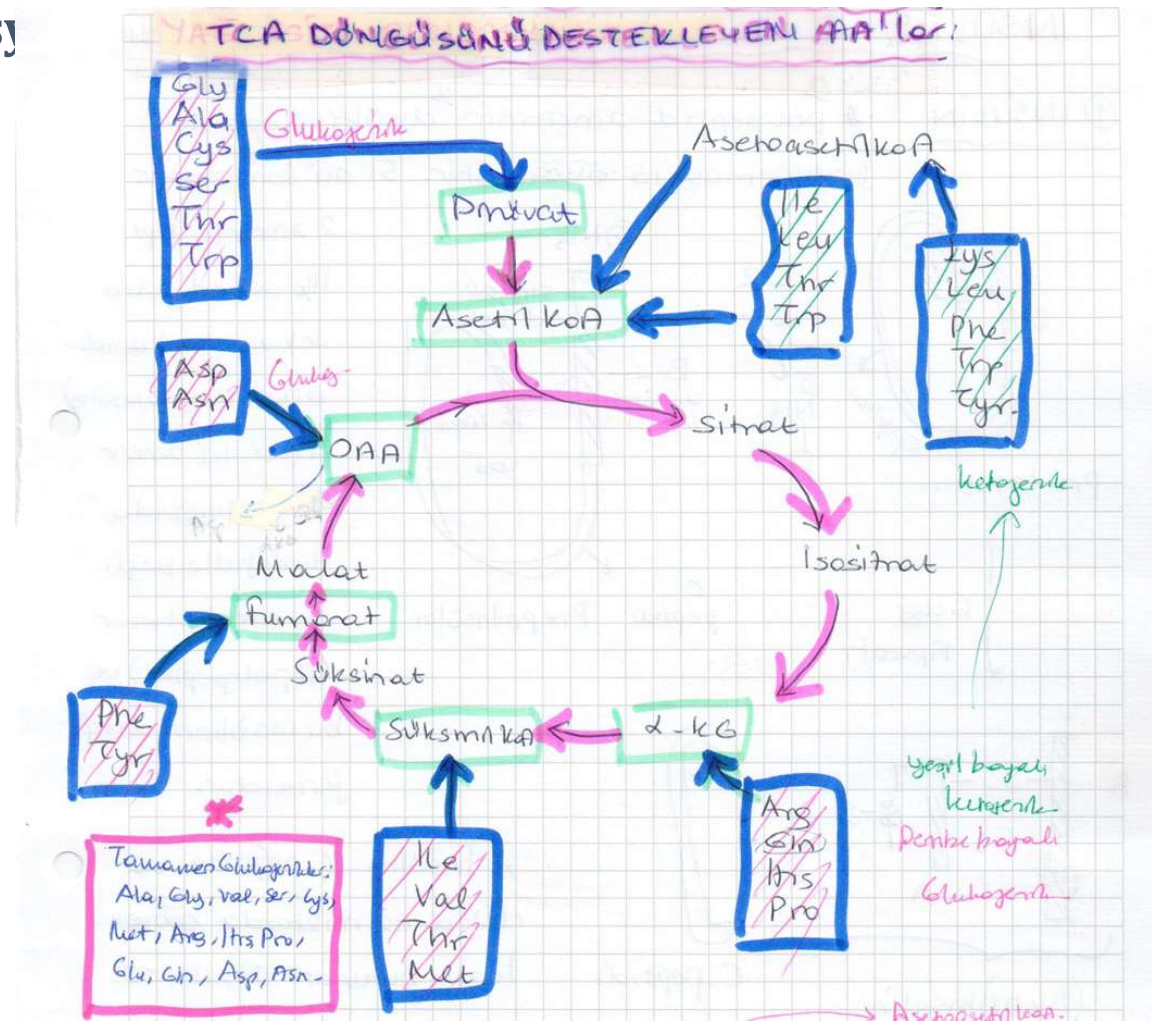 TCA DÖNGÜSÜNÜ DESTEKLEYEN AA'ler:
Gly
Ala
Cys
Ser
Thr
Trp
Glukojenik
Pirüvat
AsetoasetilkoA
Ile
Leu
Thr
Trp
Lys
Leu
Phe
Trp
Tyr
ketojenik
Asetil KoA
Asp
Asn
Glukoj-
OAA
Sitrat
Isositrat
Malat
fumarat
Süksinat
Phe
Tyr
Süksinil KoA
α-KG
Arg
Gln
His
Pro
Ile
Val
Thr
Met
yeşil boyalı
ketojenik
Pembe boyalı
Glukojenik
Tamamen Glukojenikler:
Ala, Gly, Val, Ser, Cys,
Met, Arg, His Pro,
Glu, Gln, Asp, Asn-
AsetoasetilkoA.